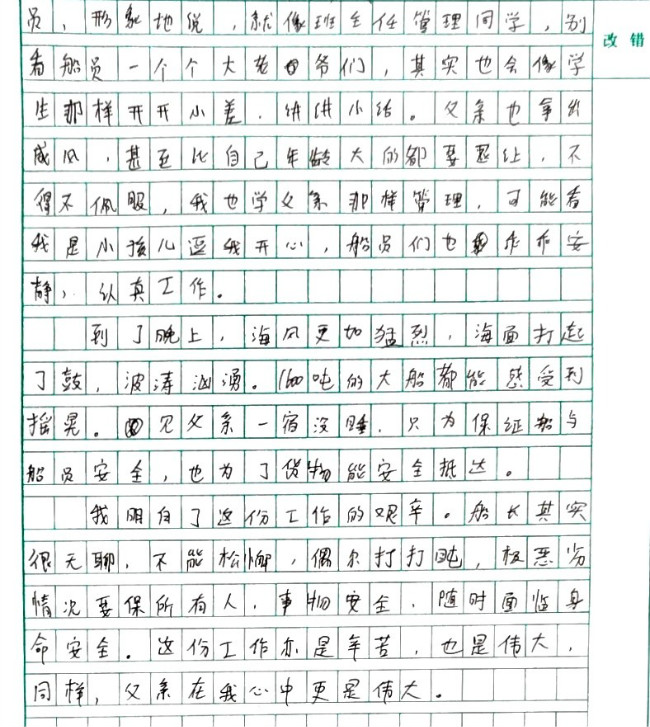 员，形象地说，就像班主任管理同学，别
改错
看船员一个个大爷们，其实也会像学
生那样开开小差，讲讲小话。父亲也拿出
威风，甚至比自己年龄大的都要惹上，不
得不佩服，我也学父亲那样管理，可能看
我是小孩儿逗我开心，船员们也乖乖安
静，认真工作。
到了晚上，海风更加猛烈，海面打起
了鼓，波涛汹涌。1600吨的大船都能感受到
摇晃。见父亲一宿没睡，只为保证船与
船员安全，也为了货物能安全抵达。
我明白了这份工作的艰辛。船长其实
很无聊，不能松懈，偶尔打打盹，极恶劣
情况要保所有人，事物安全，随时面临身
命安全。这份工作亦是辛苦，也是伟大，
同样，父亲在我心中更是伟大。